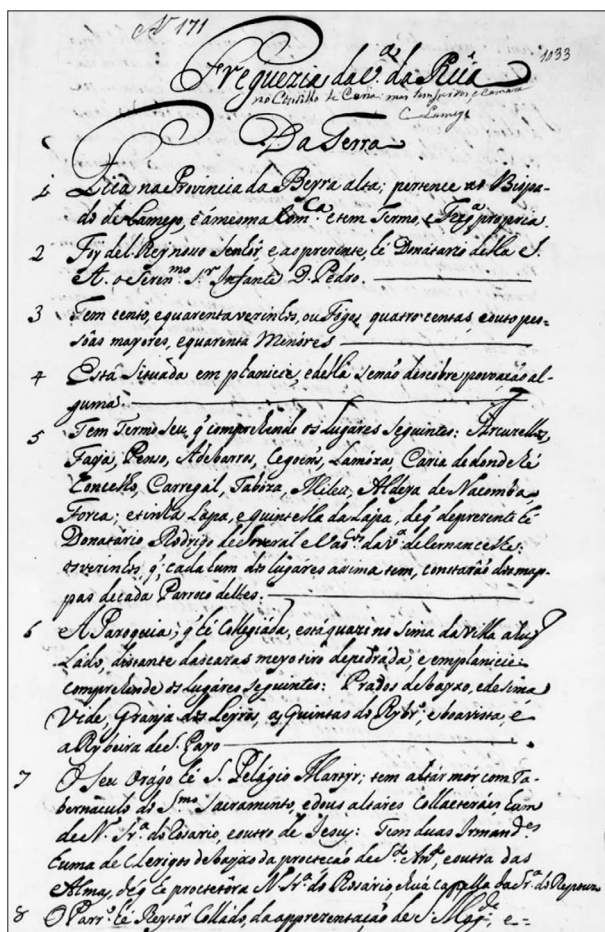 Nº 171
1033
Freguezia da vª. da Rúa
no Concelho de Caria: mas tem Juizes, e Camara
Lamego
Da Terra
1 Fica na Provincia da Beyra alta; pertence ao Bispa-
do de Lamego, e á mesma Comcª. e tem Termo, e Fregª. propria.
2 Foy del Rey nosso Senhor, e ao prezente, hé Donatario della o S.
A. o Serenmo. Sr. Infante D. Pedro.
3 Tem cento, e quarenta vezinhos, ou Fógos, quatro centas, e outo pes-
sôas mayores, e quarenta Menóres
4 Está Situáda em planicie, e della senaõ descobre povoacaõ al-
guma.
5 Tem Termo seu, q̃ comprehende os lugares Seguintes: Arcuzellos,
Faya, Penso, Adebarros, Segoens, Lamóza, Caria de donde hé
Concelho, Carregál, Tabóza, Aldeya de Nacomba,
Forca; e tinha Lapa, e quintella da Lapa, de q̃ de prezente hé
Donatário Rodrigo de Soverál e Vasºs. da vª. de Sernancelhe:
os vezinhos, q̃ cada hum dos lugáres asima tem, constaráõ dos map-
pas de cáda Parroco delles.
6 A Paroquia, q̃ hé Collegiáda, está quazi no Sima da Villa a hum
Lado, distante das cazas meyo tiro de pedráda, e em planicie
comprehende os lugáres seguintes: Prados de bayxo, e de sima
Vide, Granja dos Leyros, as Quintas do Rybrº. e boavista, e
a Rybeira de S. Payo
7 O Seu Orágo hé S. Pelágio Martyr; tem altár mor com Ta-
bernaculo do Smo. Sacramento, e dous altares Collaterais hum
de N. Srª. do Rosario, e outro de Jesus: Tem duas Irmandes
huma de Clerigos debayxo da protecçaõ de Stº. Antº. e outra das
Almas, de q̃ hé protectôra N. Srª. do Rosário, e há capella da Srª. do
8 O Parrº. hé Reytór Colládo, da apprezentação de S. Magde.; e=